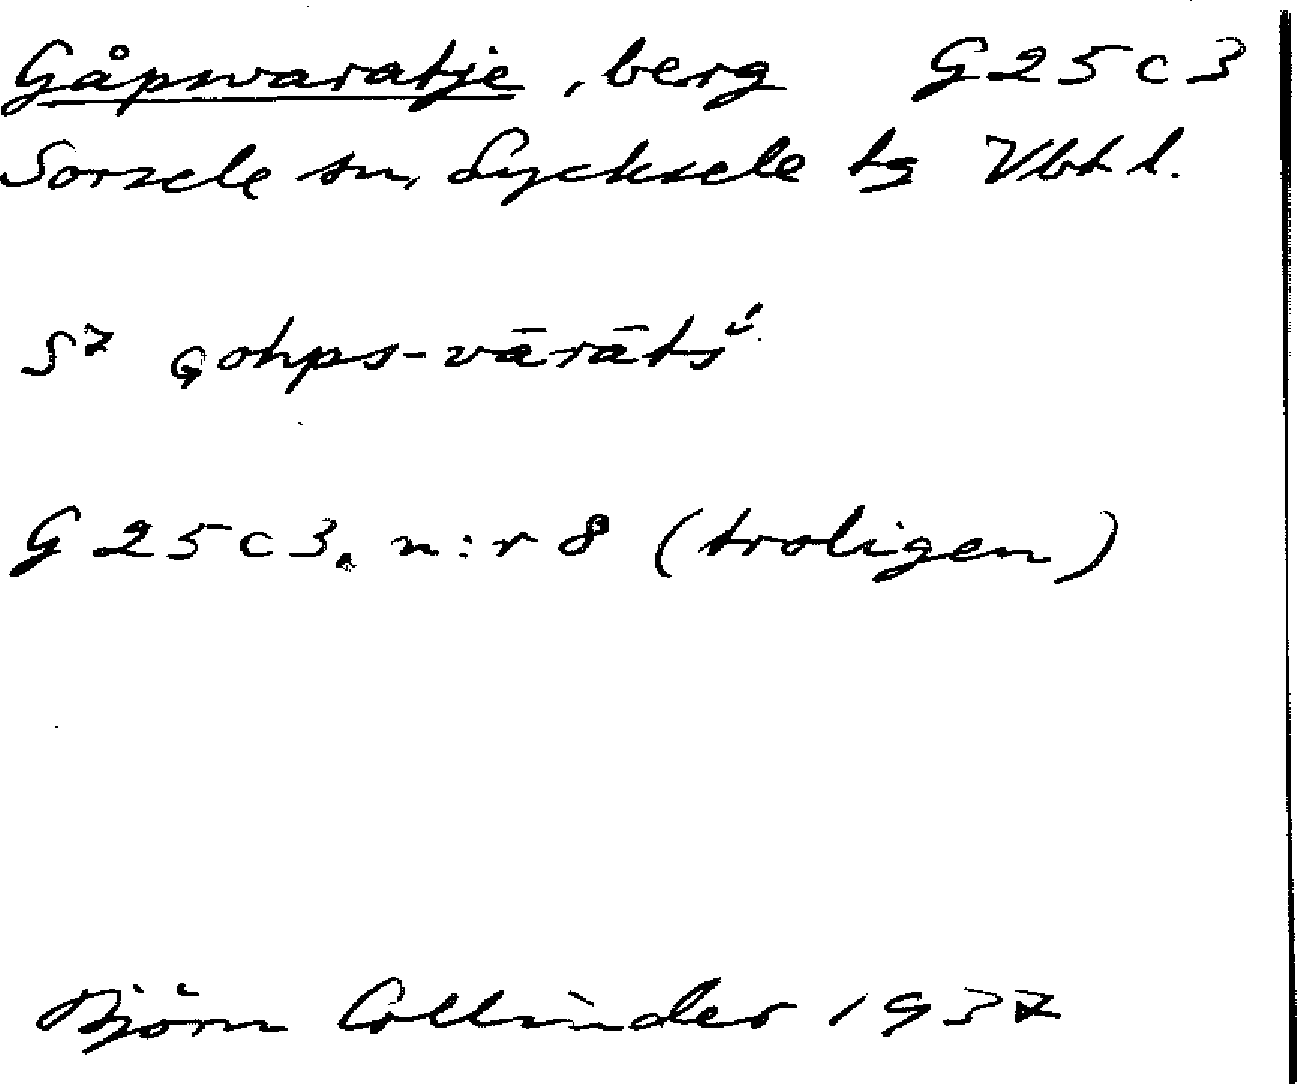 Gåpsvaratje, berg G 25 c 3
Sorsele sn, Lycksele tg Vbtl.
S7 Gohps-vārāts
G 25 c 3. n:r 8 (troligen)
Björn Collinder 1937